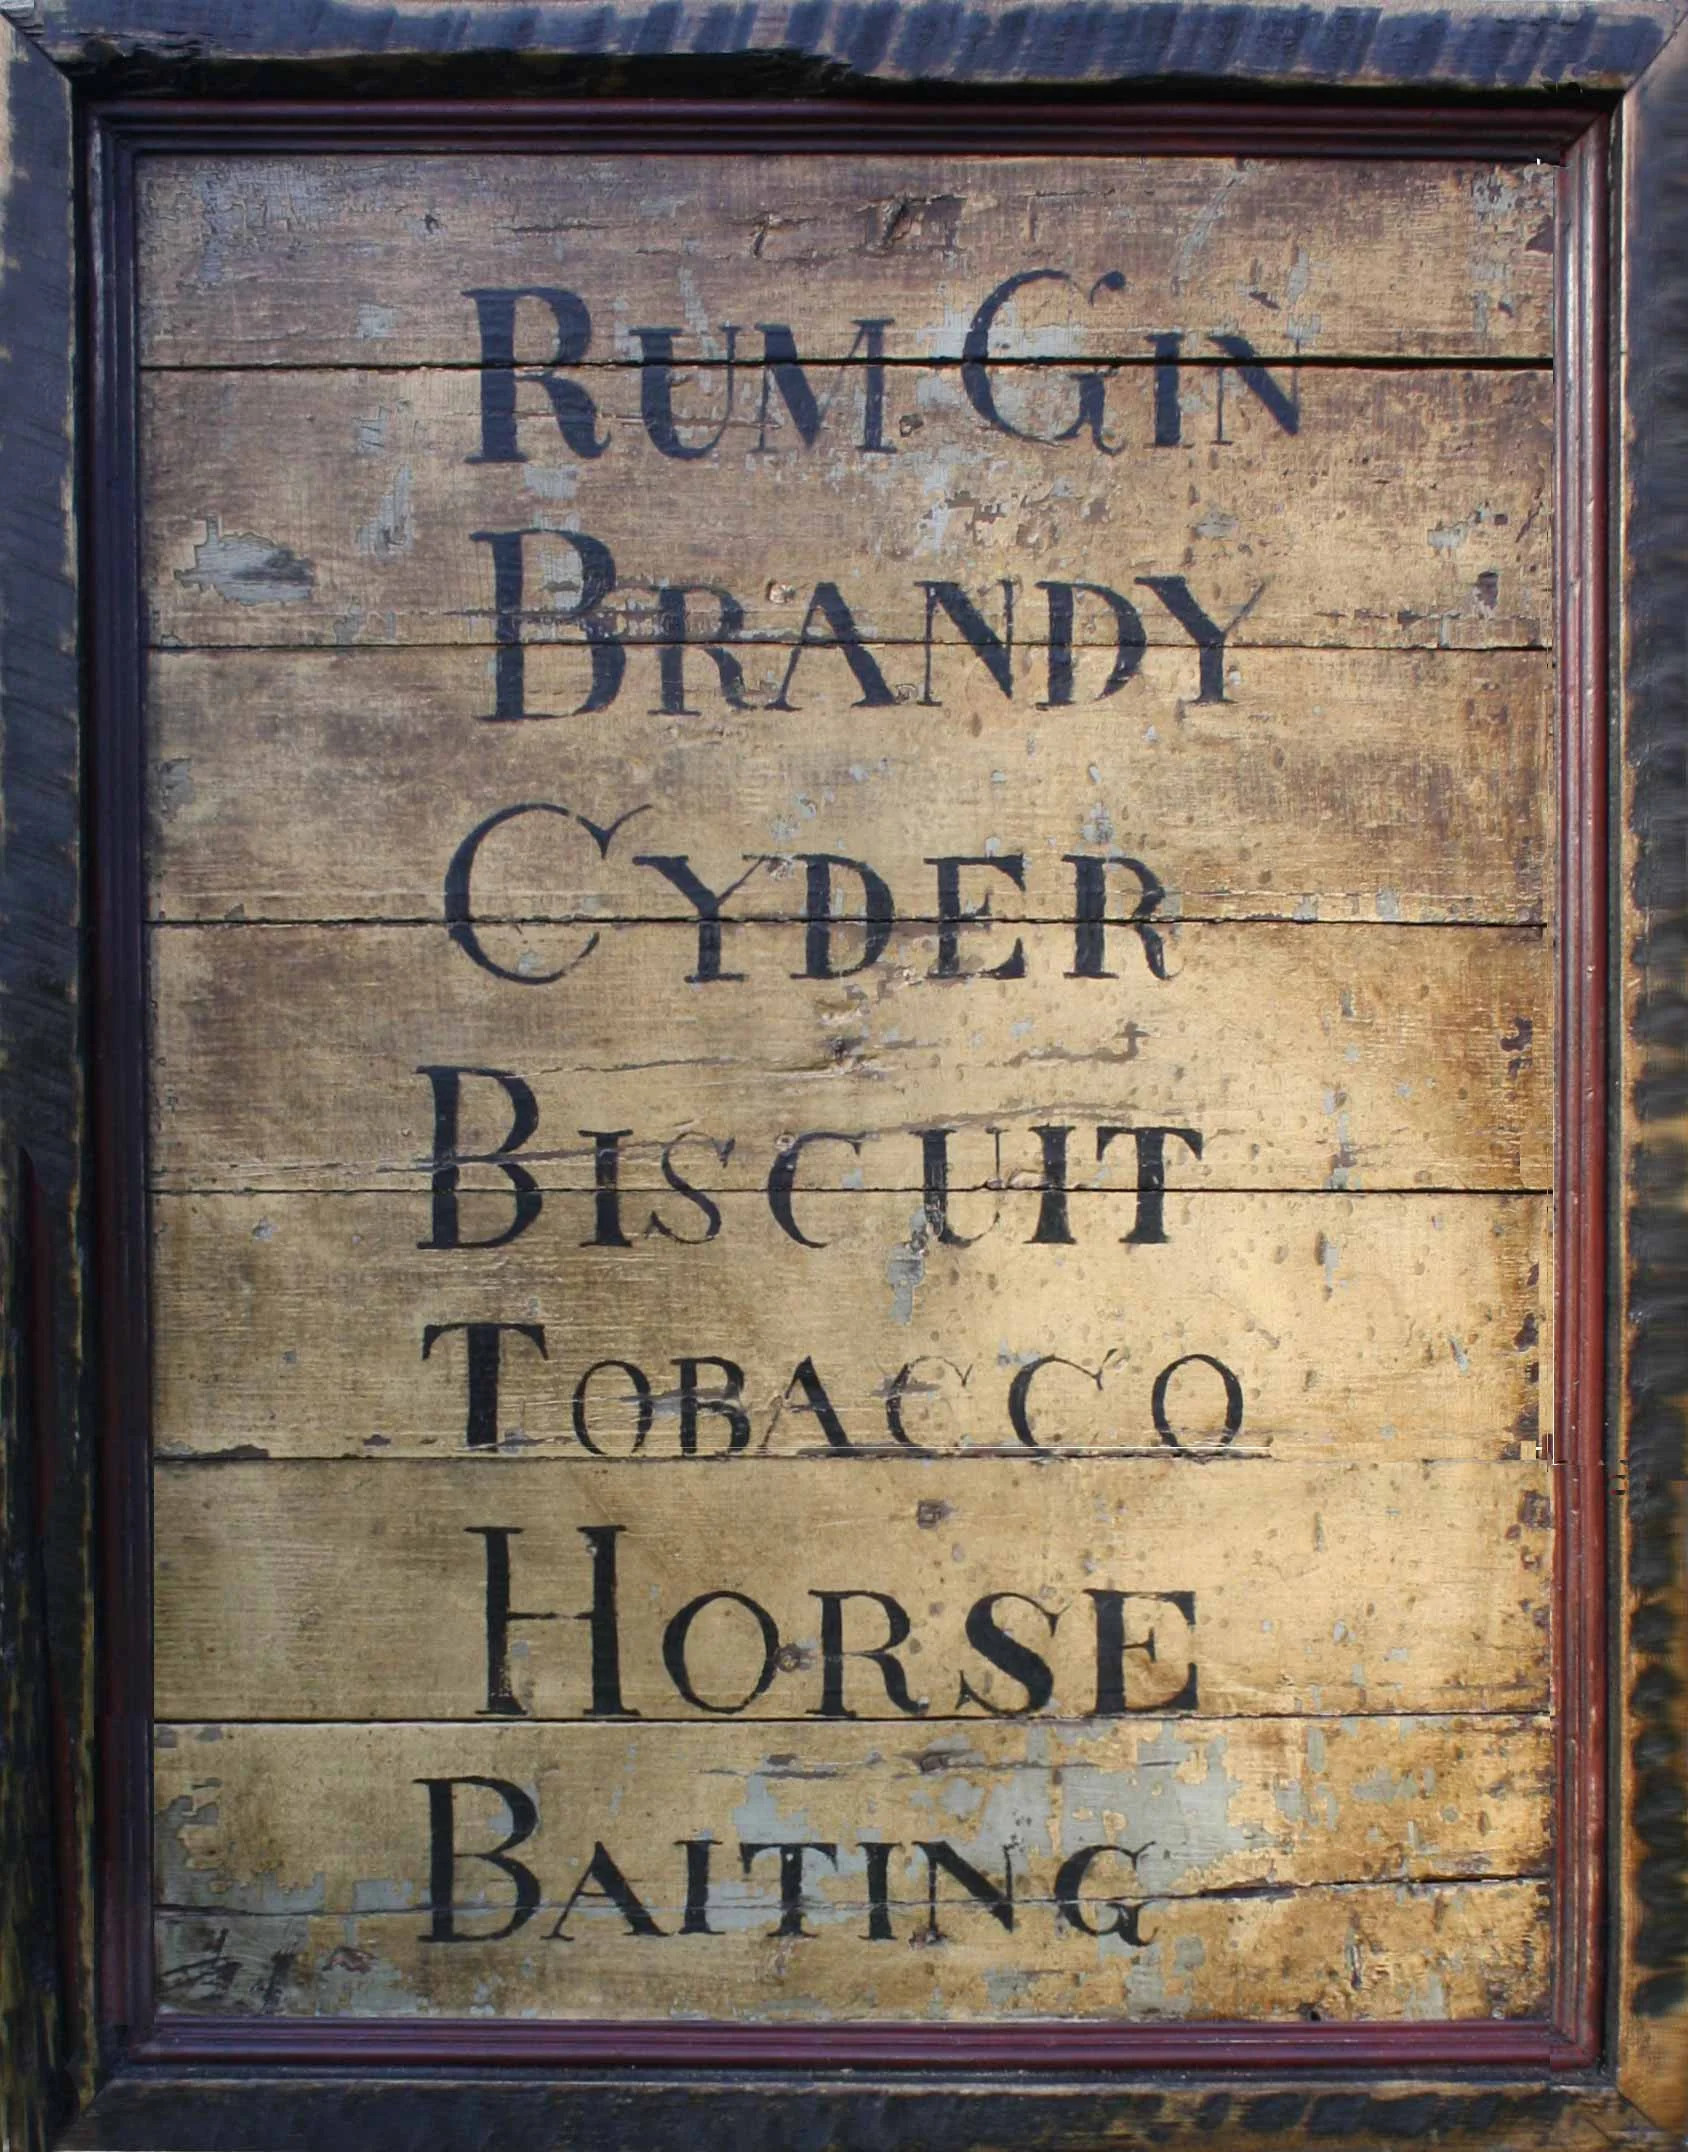 RUM GIN
BRANDY
CYDER
BISCUIT
TOBACCO
HORSE
BAITING